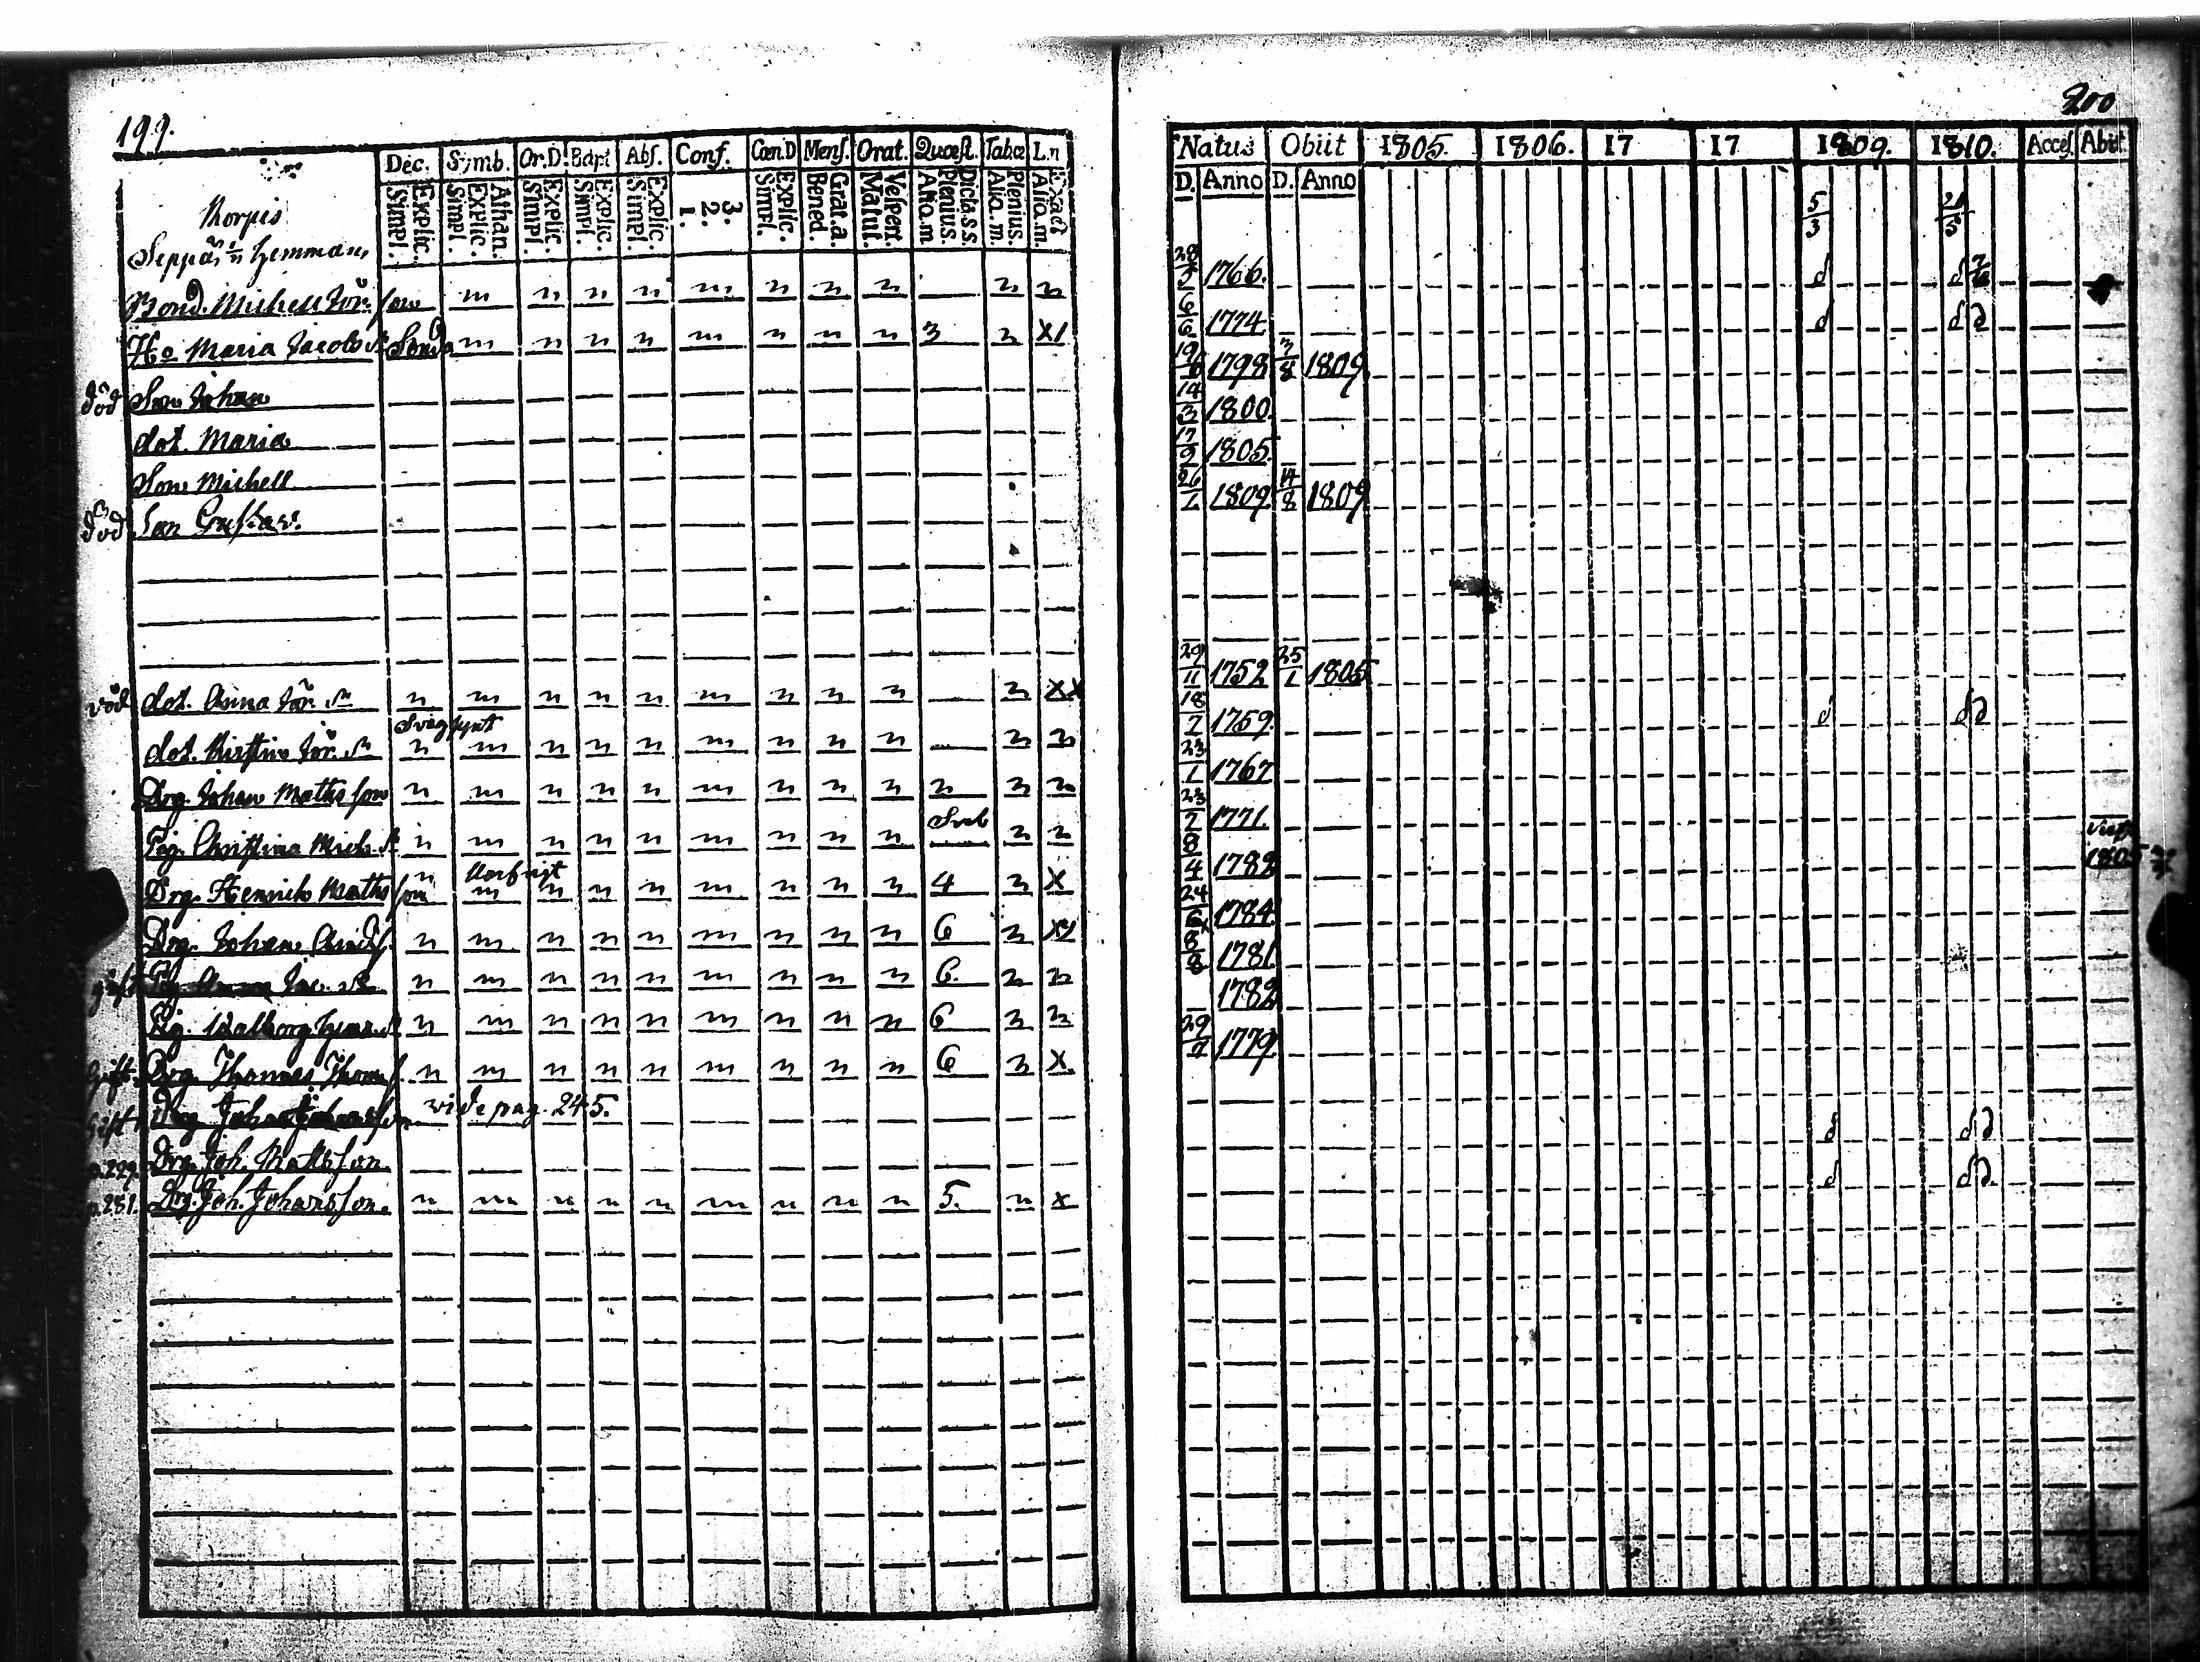 199.
Dec. Symb. Or.D. Bapt Abs. Conf. Cœn.D Mens. Orat. Quæst. Tabæ L.n
Explic. Simpl. Athan. Explic. Simpl. Explic. Simpl. Explic. Simpl. Explic. Simpl. 3. 2. 1. Explic. Simpl. Grat.a. Bened. Vesper. Matut. Dicta s.s. Plenius. Alio.m Plenius. Alio.m. Exact Alio.m.
Korpis
Seppä hemman
Bond. Michell Jör. son n n n n n n n n n n
Ho Maria Jacobs dr n n n n n n n n 3 n XI
död Son Johan
dot. Maria
Son Michell
död Son Gustav.
död dot. Anna Jör. dr n n n n n n n n n n XX
Svagsynt
dot. Kirstin Jör. dr n n n n n n n n n n n
Drg. Johan Matts son n n n n n n n n n n n n
Svab
Pig. Christina Mich. dr n n n n n n n n n n n
Drg. Henrich Matts son n n n n n n n n n 4 n X
Drg. Johan n n n n n n n n n 6 n XI
gift Pig. Anna Jac. dr n n n n n n n n n 6. n n
Pig. Walborg n n n n n n n n n 6 n n
Gift Drg. Thomas Thom. s. n n n n n n n n n 6 n X.
Gift Drg. Johan Johansson vide pag. 245.
p.229. Drg. Joh. Mattsson.
p.281. Drg. Joh. Johansson. n n n n n n n n n 5. n x
200
Natus Obiit 1805. 1806. 17 17 1809. 1810. Acces. Abiit
D. Anno D. Anno
5/3
28/5 1766. d d
6/6 1774 d dd
19 1798 7/8 1809
14/3 1800.
17/9 1805.
26/1 1809 14/8 1809
29/11 1752 25/1 1805
18/2 1759. d dd
23/1 1767
23/2 1771.
8/4 1782 1805
24/6 1784
8/8 1781
1782
29 1779
d dd
d dd.